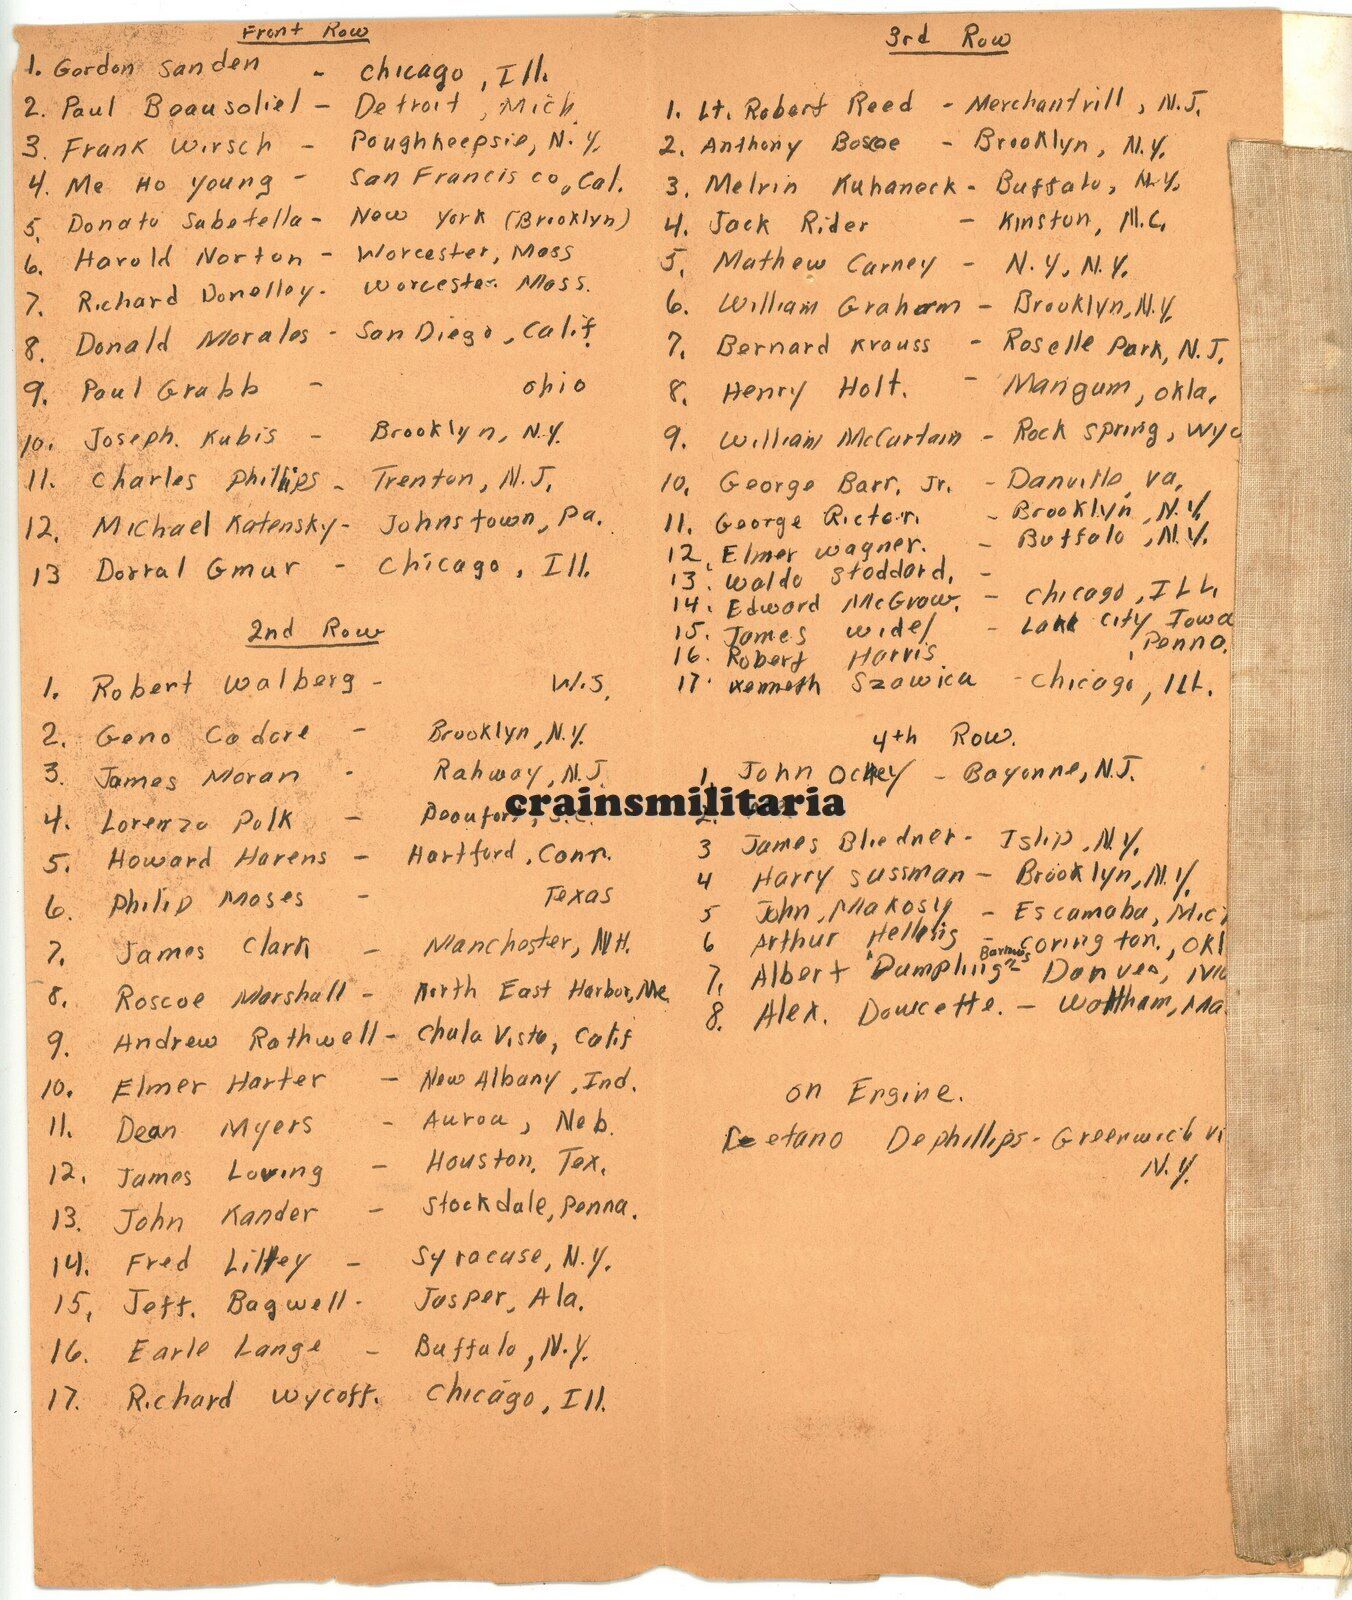 Front Row
1. Gordon Sanden - Chicago, Ill.
2. Paul Beausoliel - Detroit, Mich.
3. Frank Wirsch - Poughkeepsie, N.Y.
4. Me Ho Young - San Francisco, Cal.
5. Donato Sabetella - New York (Brooklyn)
6. Harold Norton - Worcester, Mass
7. Richard Donelley - Worcester Mass.
8. Donald Morales - San Diego, Calif
9. Paul Grabb - Ohio
10. Joseph. Kubis - Brooklyn, N.Y.
11. Charles Phillips - Trenton, N.J.
12. Michael Katensky - Johnstown, Pa.
13 Dorral Gmur - Chicago, Ill.
2nd Row
1. Robert Walberg - W.S.
2. Geno Cadore - Brooklyn, N.Y.
3. James Moran - Rahway, N.J.
4. Lorenzo Polk -
5. Howard Harens - Hartford, Conn.
6. Philip Moses - Texas
7. James Clark - Manchester, NH.
8. Roscoe Marshall - North East Harbor, Me.
9. Andrew Rothwell - Chula Vista, Calif
10. Elmer Harter - New Albany, Ind.
11. Dean Myers - Auroa, Neb.
12. James Loving - Houston, Tex.
13. John Kander - Stockdale, Penna.
14. Fred Lilley - Syracuse, N.Y.
15. Jeff. Bagwell - Jasper, Ala.
16. Earle Lange - Buffalo, N.Y.
17. Richard Wycoff. Chicago, Ill.
3rd Row
1. Lt. Robert Reed - Merchantvill, N.J.
2. Anthony Boscoe - Brooklyn, N.Y.
3. Melvin Kuhaneck - Buffalo, N.Y.
4. Jack Rider - Kinston, N.C.
5. Mathew Carney - N.Y, N.Y.
6. William Graham - Brooklyn, N.Y.
7. Bernard Krauss - Roselle Park, N.J.
8. Henry Holt. - Mangum, Okla.
9. William McCurtain - Rock Spring, Wyo
10. George Barr. Jr. - Danville, Va.
11. George Rictor. - Brooklyn, N.Y.
12. Elmer Wagner. - Buffalo, N.Y.
13. Waldo Stoddard, -
14. Edward McGraw. - Chicago, ILL.
15. James Widel - Lake City Iowa
16. Robert Harris , Penna.
17. Kenneth Szawica - Chicago, Ill.
4th Row.
1. John Ockey - Bayonne, N.J.
crainsmilitaria
2.
3 James Bliedner - Islip, N.Y.
4 Harry Sussman - Brooklyn, N.Y.
5 John Makosy - Escamaba, Mic
6 Arthur - Covington, Okl
7. Albert "Dumpling" Barnes - Danves,
8. Alex. Doucette. - Waltham, Ma
on Engine.
Dephillips - Greenwich Vi
N.Y.